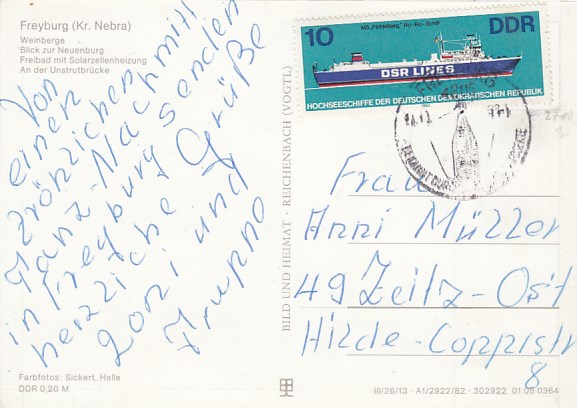 Freyburg (Kr. Nebra)
Weinberge
Blick zur Neuenburg
Freibad mit Solarzellenheizung
An der Unstrutbrücke
Von
einen
Tanz-Nachmitt
in Freyburg senden
herzliche Grüße
und
Farbfotos: Sickert, Halle
DDR 0,20 M
BILD UND HEIMAT · REICHENBACH (VOGTL)
10
MS „Fichtelberg“ Ro-Ro-Schiff
DDR
DSR LINES
HOCHSEESCHIFFE DER DEUTSCHEN DEMOKRATISCHEN REPUBLIK
Frau
Anni Müller
49 Zeitz-Ost
Hilde-Coppistr
8
III/26/13 · A1/2922/82 · 302922 01 08 0364